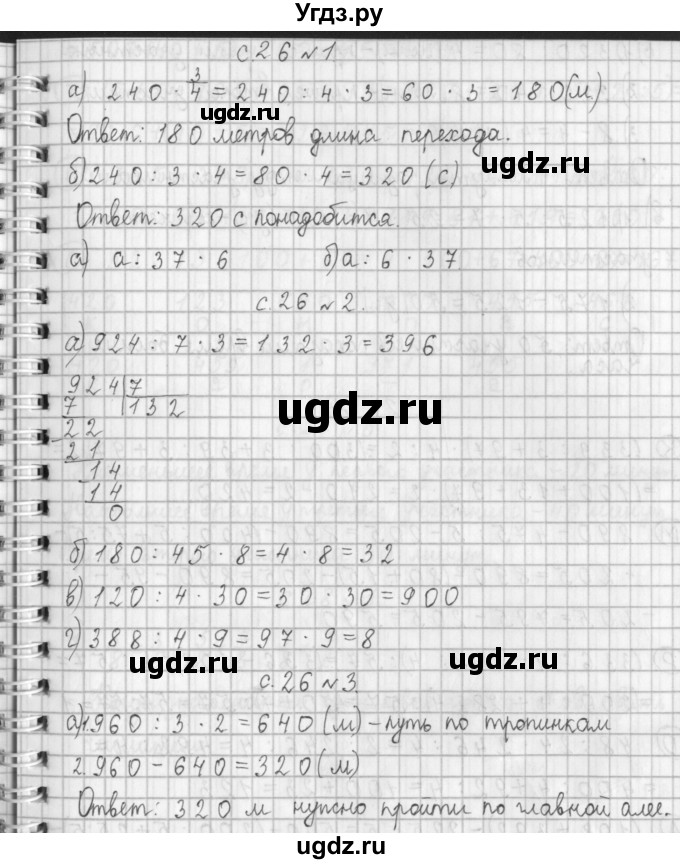 Угдз.ру
с 26 №1
а) 240 · 3/4 = 240 : 4 · 3 = 60 · 3 = 180(м)
ugdz.ru ugdz.ru
Ответ: 180 метров длина перехода.
ugdz.ru
б) 240 : 3 · 4 = 80 · 4 = 320 (с)
Ответ: 320 с понадобится.
ugdz.ru
а) a : 37 · 6 б) a : 6 · 37
с. 26 №2.
а) 924 : 7 · 3 = 132 · 3 = 396
924 7
7 132
22
21
14
14
0
ugdz.ru
б) 180 : 45 · 8 = 4 · 8 = 32
в) 120 : 4 · 30 = 30 · 30 = 900
г) 388 : 4 · 9 = 97 · 9 = 8
ugdz.ru ugdz.ru
с. 26 №3.
а) 1. 960 : 3 · 2 = 640 (м) – путь по тропинкам
2. 960 – 640 = 320 (м)
Ответ: 320 м нужно пройти по главной алее.
ugdz.ru